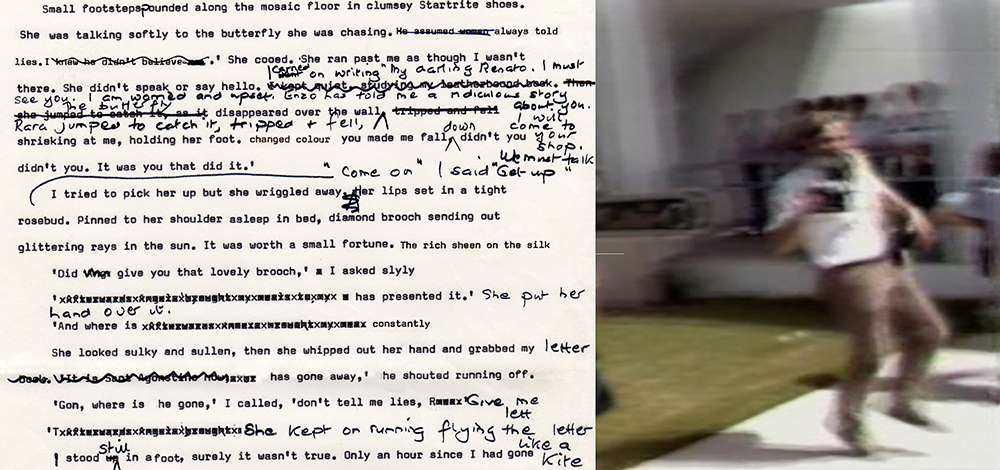 Small footsteps pounded along the mosaic floor in clumsey Startrite shoes.
She was talking softly to the butterfly she was chasing. He assumed women always told
lies. I knew he didn't believe .' She cooed. She ran past me as though I wasn't
I carried on writing "My darling Renato. I must
there. She didn't speak or say hello. I kept quiet, studying my leatherbound book. Then
see you. I am worried and upset. Enzo has told me a ridiculous story
about you.
the butterfly
she jumped to catch it, as it disappeared over the wall tripped and fell
I will
Rara jumped to catch it, tripped + fell,
come to
down
shrieking at me, holding her foot. changed colour you made me fall, didn't you
your
shop.
We must talk
didn't you. It was you that did it.' " Come on " I said "Get up "
I tried to pick her up but she wriggled away. Her lips set in a tight
rosebud. Pinned to her shoulder asleep in bed, diamond brooch sending out
glittering rays in the sun. It was worth a small fortune. The rich sheen on the silk
'Did give you that lovely brooch,' I asked slyly
has presented it.' She put her
hand over it.
'And where is constantly
She looked sulky and sullen, then she whipped out her hand and grabbed my letter
book. has gone away,' he shouted running off.
'Gon, where is he gone,' I called, 'don't tell me lies, Give me
lett
She kept on running flying the letter
like a
still
I stood in afoot, surely it wasn't true. Only an hour since I had gone
Kite